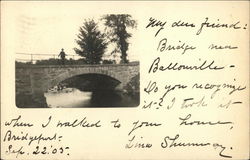 My dear friend:
Bridge near
Ballouville-
Do you recognize
it? I took it
when I walked to your home,
Bridgeport-
Sep. 22 '05.
Lina Shumway.